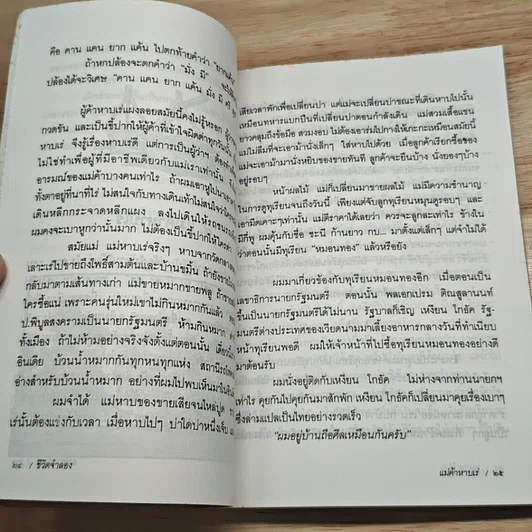 คือ คาน แคน ยาก แค้น ไปตกท้ายคำว่า "ยากแค้น
ถ้าหกปล้องจะตกคำว่า "มั่ง มี"
ปล้องได้จะวิเศษ "คาน แคน ยาก แค้น มั่ง มี ศรี
ผู้ค้าหาบเร่แผงลอยสมัยนี้คงไม่รู้หรอก
กวดขัน และเป็นขี้ปากให้ผู้ค้าที่เข้าใจผิดด่าทุกวัน
หาบเร่ จึงรู้เรื่องหาบเร่ดี แต่การเป็นผู้ว่าฯ ต้อง
ไม่ใช่ทำเพื่อผู้ที่มีอาชีพเดียวกับแม่เราเท่านั้น
อารมณ์ของแม่ค้าบางคนเท่าเร่ ถ้าผมเอาหูไป
ทั้งตาอยู่ที่นาที่ไร่ ไม่สนใจกับทางเดินเท้าไม่สนใจว่า
เดินหลีกกระจาดหลีกแผง ลงไปเดินให้รถชน
ผมคงจะเบาหูกว่านั้นมาก ไม่ต้องเป็นขี้ปากให้ใคร
สมัยแม่ แม่หาบเร่จริงๆ หาบจากวัด
เลาะเร่ไปขายถึงโพธิ์สามต้นและบ้านขมิ้น ถ้ายัง
กลับมาตามเส้นทางเก่า แม่ขายหมากขายพลู ถ้า
ใครซื้อแน่ เพราะคนรุ่นใหม่เขาไม่กินหมากกันแล้ว
ป.พิบูลสงครามเป็นนายกรัฐมนตรี ห้ามกินหมาก
ทั้งเมือง ถ้าไม่ห้ามอย่างจริงจังตั้งแต่ตอนนั้น
อินเดีย บ้วนน้ำหมากกันทุกหนทุกแห่ง สถานี
อ่างสำหรับบ้วนน้ำหมาก อย่างที่ผมไปพบเห็นมา
ผมจำได้ แม่หาบของขายเสียจนไหล่ปูด
เร่นั้นต้องแข่งกับเวลา เมื่อหาบไปๆ บ่าใดบ่าหนึ่งเจ็บ
๒๔ / ชีวิตจำลอง
เสียเวลาพักเพื่อเปลี่ยนบ่า แต่แม่จะเปลี่ยนบ่าขณะที่เดินหาบไปนั้น
เหมือนทหารแบกปืนที่เปลี่ยนบ่าตอนกำลังเดิน แม่สวมเสื้อแขน
ยาวคลุมถึงข้อมือ สวมงอบ ไม่ต้องเอาร่มไปกางให้เกะกะเหมือนสมัยนี้
แม่ไม่ลืมที่จะเอาม้านั่งเล็กๆ ใส่หาบไปด้วย เมื่อลูกค้าเรียกซื้อของ
แม่จะเอาม้ามานั่งหยิบของขายทันที ลูกค้าจะยืนบ้าง นั่งยองๆบ้าง
อยู่รอบๆ
หน้าผลไม้ แม่ก็เปลี่ยนมาขายผลไม้ แม่มีความชำนาญ
ในการดูทุเรียนจนถึงวันนี้ เพียงแต่จับลูกทุเรียนหมุนดูรอบๆ และ
เอามีดเคาะๆเท่านั้น แม่ตีราคาได้เลยว่า ควรจะลูกละเท่าไร ข้างใน
มีกี่พู ผมคุ้นกับชื่อ ชะนี ก้านยาว กบ... มาตั้งแต่เล็กๆ แต่จำไม่ได้
ว่าตอนนั้นมีทุเรียน "หมอนทอง" แล้วหรือยัง
ผมมาเกี่ยวข้องกับทุเรียนหมอนทองอีก เมื่อตอนเป็น
เลขาธิการนายกรัฐมนตรี ตอนนั้น พลเอกเปรม ติณสูลานนท์
ขึ้นเป็นนายกรัฐมนตรีได้ไม่นาน รัฐบาลก็เชิญ เหงียน โกธัค รัฐ-
มนตรีต่างประเทศของเวียดนามมาเลี้ยงอาหารกลางวันที่ทำเนียบ
หน้าทุเรียนพอดี ผมให้เจ้าหน้าที่ไปซื้อทุเรียนหมอนทองอย่างดี
มาต้อนรับ
ผมนั่งอยู่ติดกับเหงียน โกธัค ไม่ห่างจากท่านนายกฯ
เท่าไร คุยกันไปคุยกันมาสักพัก เหงียน โกธัคก็เปลี่ยนมาคุยเรื่องเบาๆ
ซึ่งล่ามแปลเป็นไทยอย่างรวดเร็ว
"ผมอยู่บ้านถือศีลเหมือนกันครับ"
แม่ค้าหาบเร่ / ๒๕